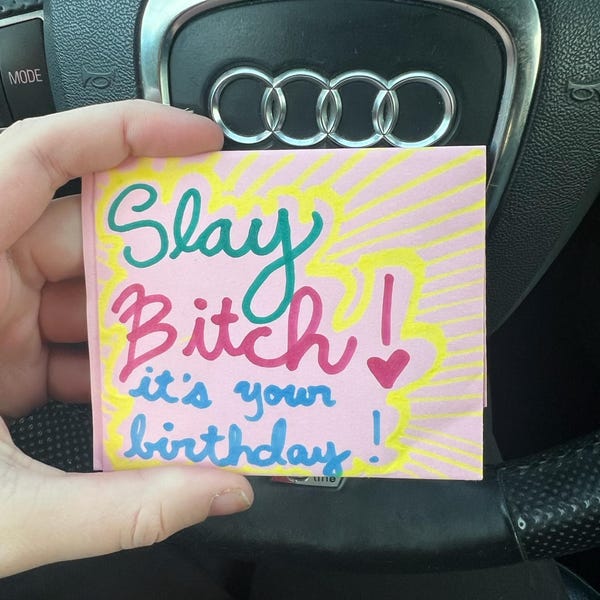 MODE
Slay
Bitch!
it's your
birthday!
line